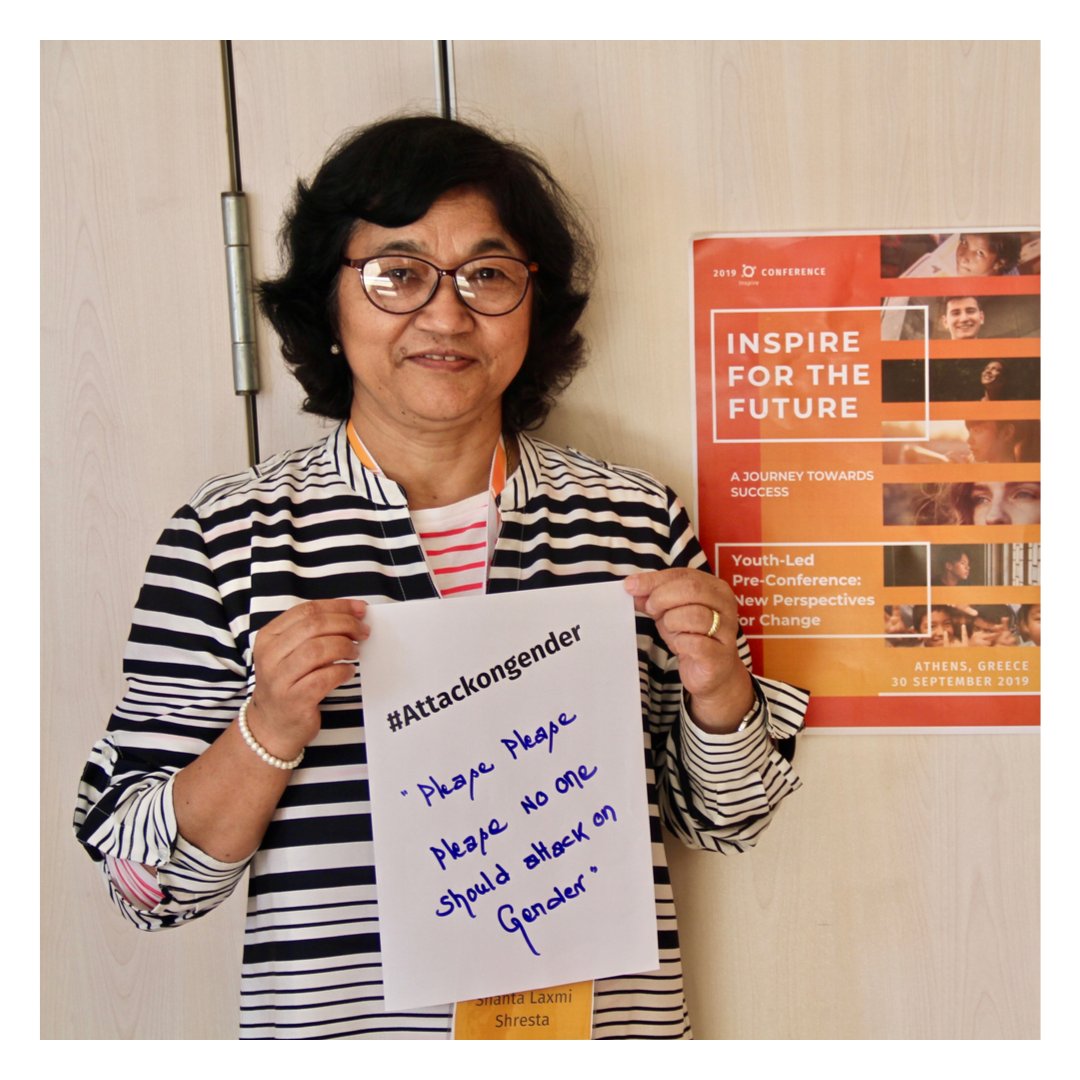 #Attackongender
"Please Please
Please No one
should attack on
Gender"
Shanta Laxmi
Shresta
2019 Inspire CONFERENCE
INSPIRE
FOR THE
FUTURE
A JOURNEY TOWARDS
SUCCESS
Youth-Led
Pre-Conference:
New Perspectives
for Change
ATHENS, GREECE
30 SEPTEMBER 2019